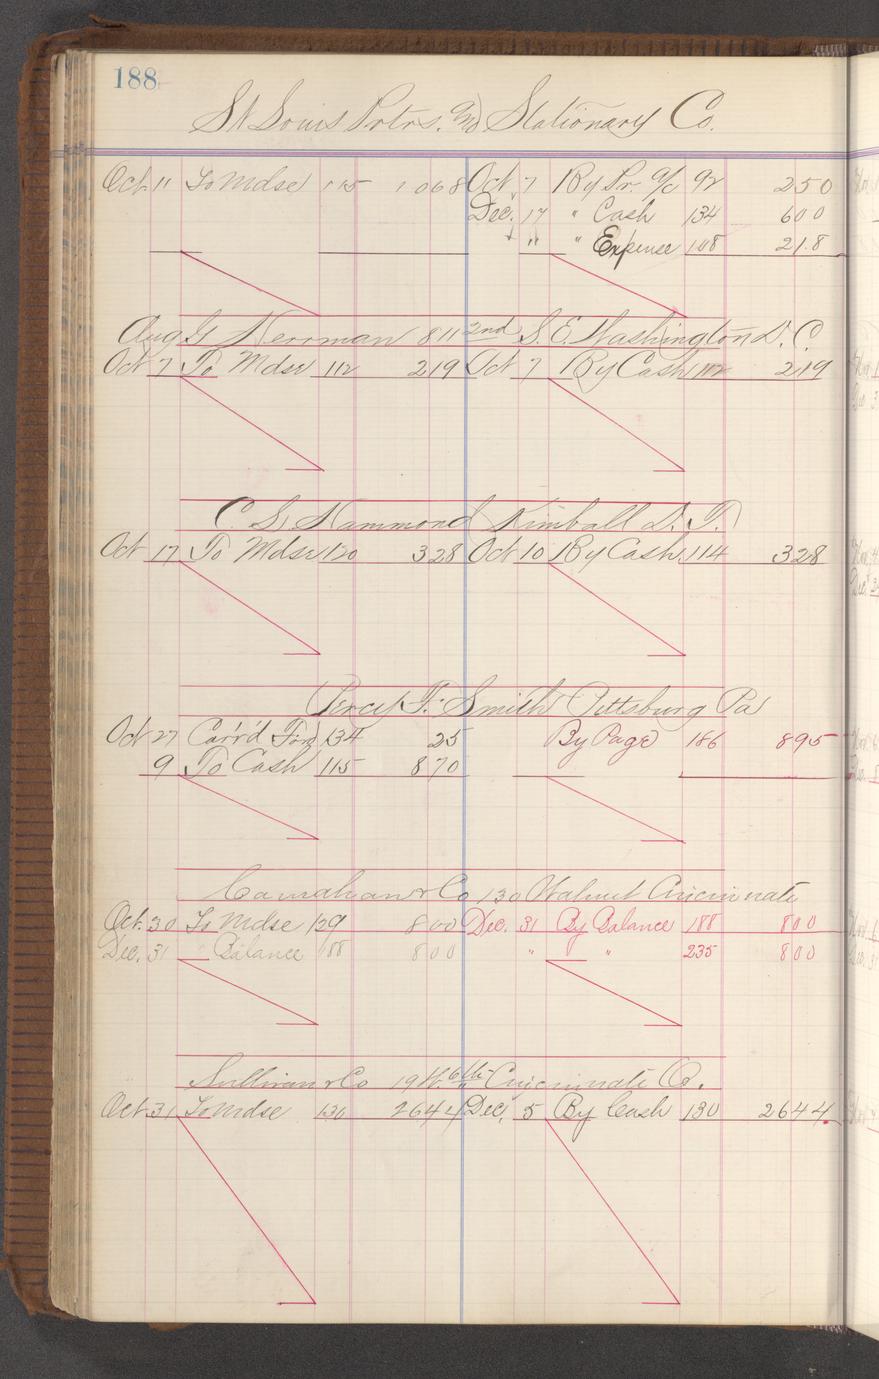 188
St Louis Prtrs. and Stationary Co.
Oct 11 To Mdse 115 1068 Oct 7 By Pr. a/c 92 250
Dec. 17 " Cash 134 600
" " Expense 108 218
Aug G Herrman 811 2nd S. E. Washington D. C.
Oct 7 To Mdse 112 219 Oct 7 By Cash 112 219
C. S. Hammond Kimball D. T.
Oct 17 To Mdse 120 328 Oct 10 By Cash 114 328
Percy F. Smith Pittsburg Pa
Oct 27 Carr'd For 134 25 By Page 186 895
9 To Cash 115 870
Carnahan & Co 130 Walnut Cincinnati
Oct. 30 To Mdse 129 800 Dec. 31 By Balance 188 800
Dec. 31 " Balance 188 800 " " 235 800
Sullivan & Co 19 W. 6th Cincinnati O.
Oct 31 To Mdse 130 2644 Dec. 5 By Cash 130 2644